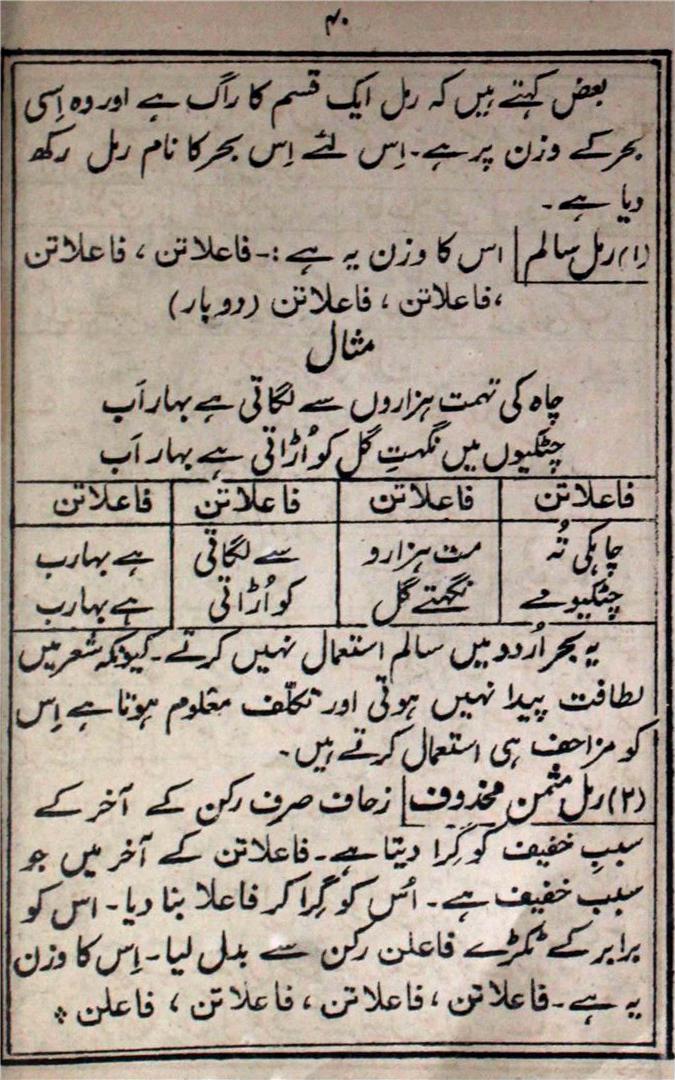 ۴۰
بعض کہتے ہیں کہ رمل ایک قسم کا راگ ہے اور وہ اِسی
بحر کے وزن پر ہے۔ اِس لئے اِس بحر کا نام رمل رکھ
دیا ہے۔
(۱) رمل سالم اس کا وزن یہ ہے :- فاعلاتن ، فاعلاتن
، فاعلاتن ، فاعلاتن (دوبار)
مثال
چاہ کی تہمت ہزاروں سے لگاتی ہے بہار اَب
چٹکیوں میں نگہتِ گل کو اُڑاتی ہے بہار اَب
فاعلاتن فاعلاتن فاعلاتن فاعلاتن
چاہکی تُہ مت ہزارو سے لگاتی ہے بہارب
چٹکیومے نگہتے گل کو اُڑاتی ہے بہارب
یہ بحر اُردو میں سالم استعمال نہیں کرتے۔ کیونکہ شعر میں
لطافت پیدا نہیں ہوتی اور تکلّف معلوم ہوتا ہے اِس
کو مزاحف ہی استعمال کرتے ہیں۔
(۲) رمل مثمن محذوف زحاف صرف رکن کے آخر کے
سببِ خفیف کو گِرا دیتا ہے۔ فاعلاتن کے آخر میں جو
سبب خفیف ہے۔ اُس کو گِرا کر فاعلا بنا دیا۔ اس کو
برابر کے ٹکڑے فاعلن رکن سے بدل لیا۔ اِس کا وزن
یہ ہے۔ فاعلاتن ، فاعلاتن ، فاعلاتن ، فاعلن ؞